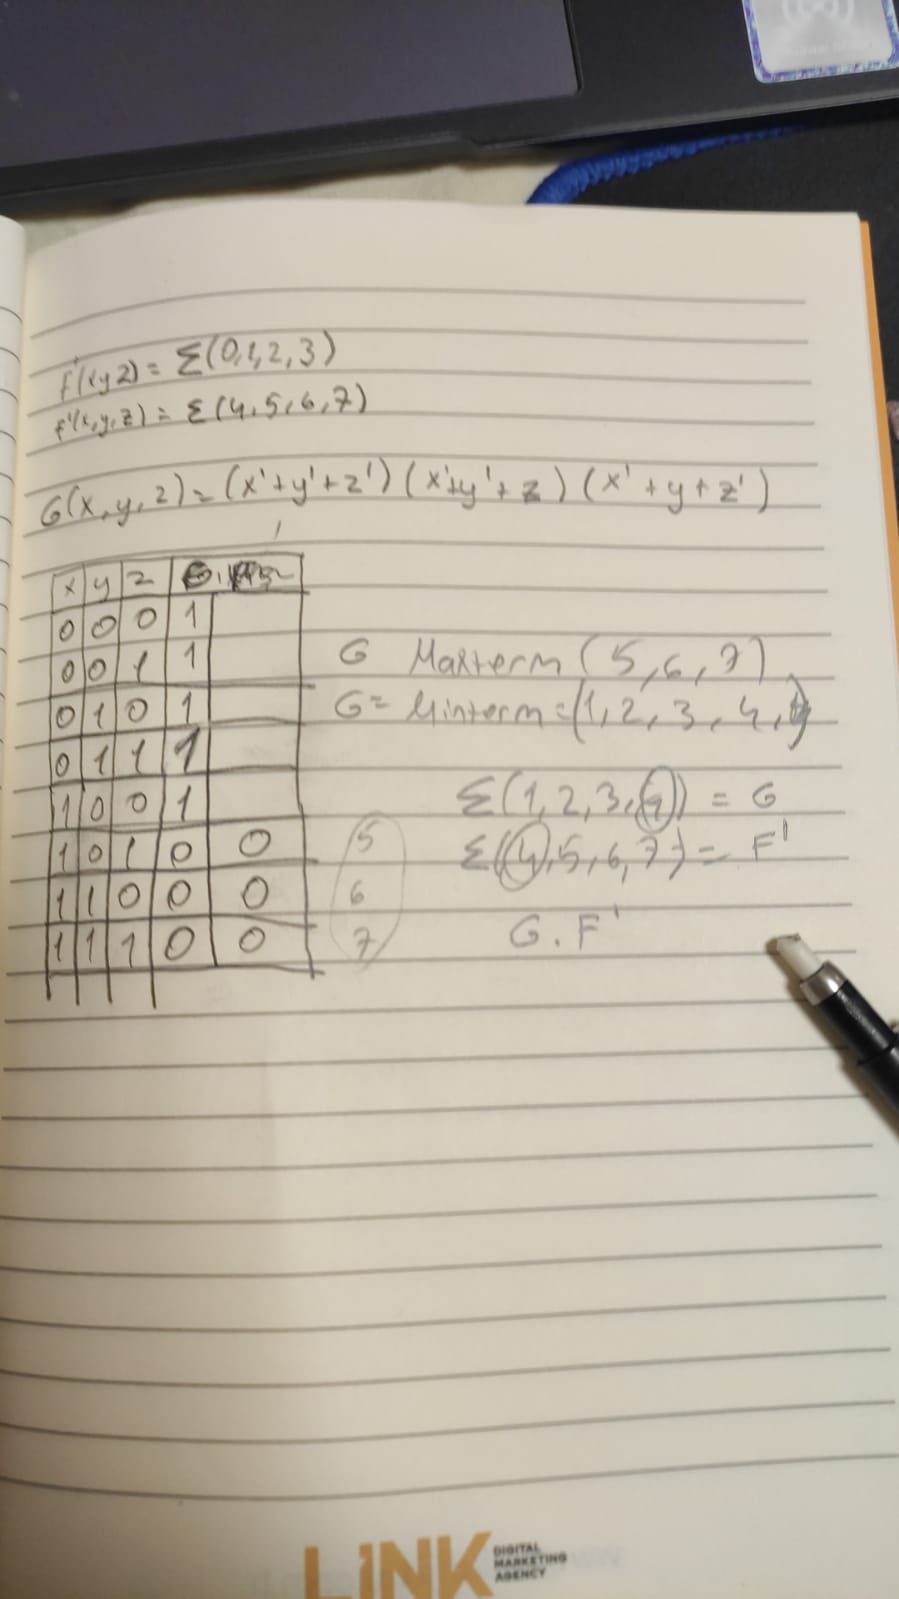 F(xyz) = Σ(0,1,2,3)
F'(x,y,z) = Σ(4,5,6,7)
G(x,y,z) = (x'+y'+z') (x'+y'+z) (x'+y+z')
x y z
0 0 0 1
0 0 1 1
0 1 0 1
0 1 1 1
1 0 0 1
1 0 1 0 0 5
1 1 0 0 0 6
1 1 1 0 0 7
G Maxterm (5,6,7)
G = Minterm = (1,2,3,4,
Σ(1,2,3,4) = G
Σ(4,5,6,7) = F'
G.F'
LINK DIGITAL MARKETING AGENCY